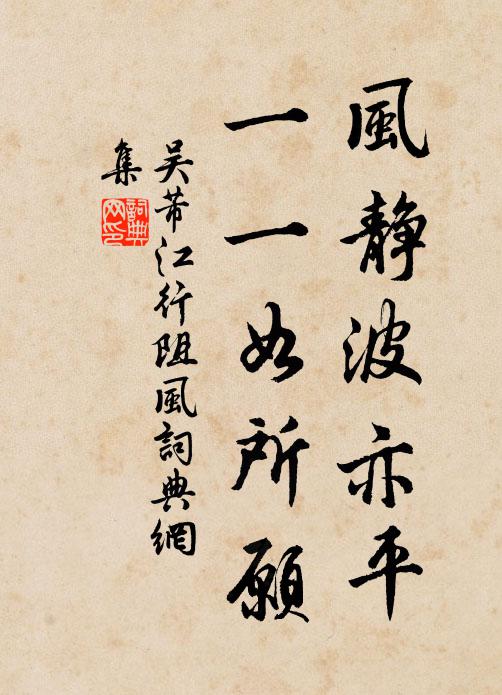 風靜波亦平
一一如所願
吳芾江行阻風詞典網
集
詞典
网印